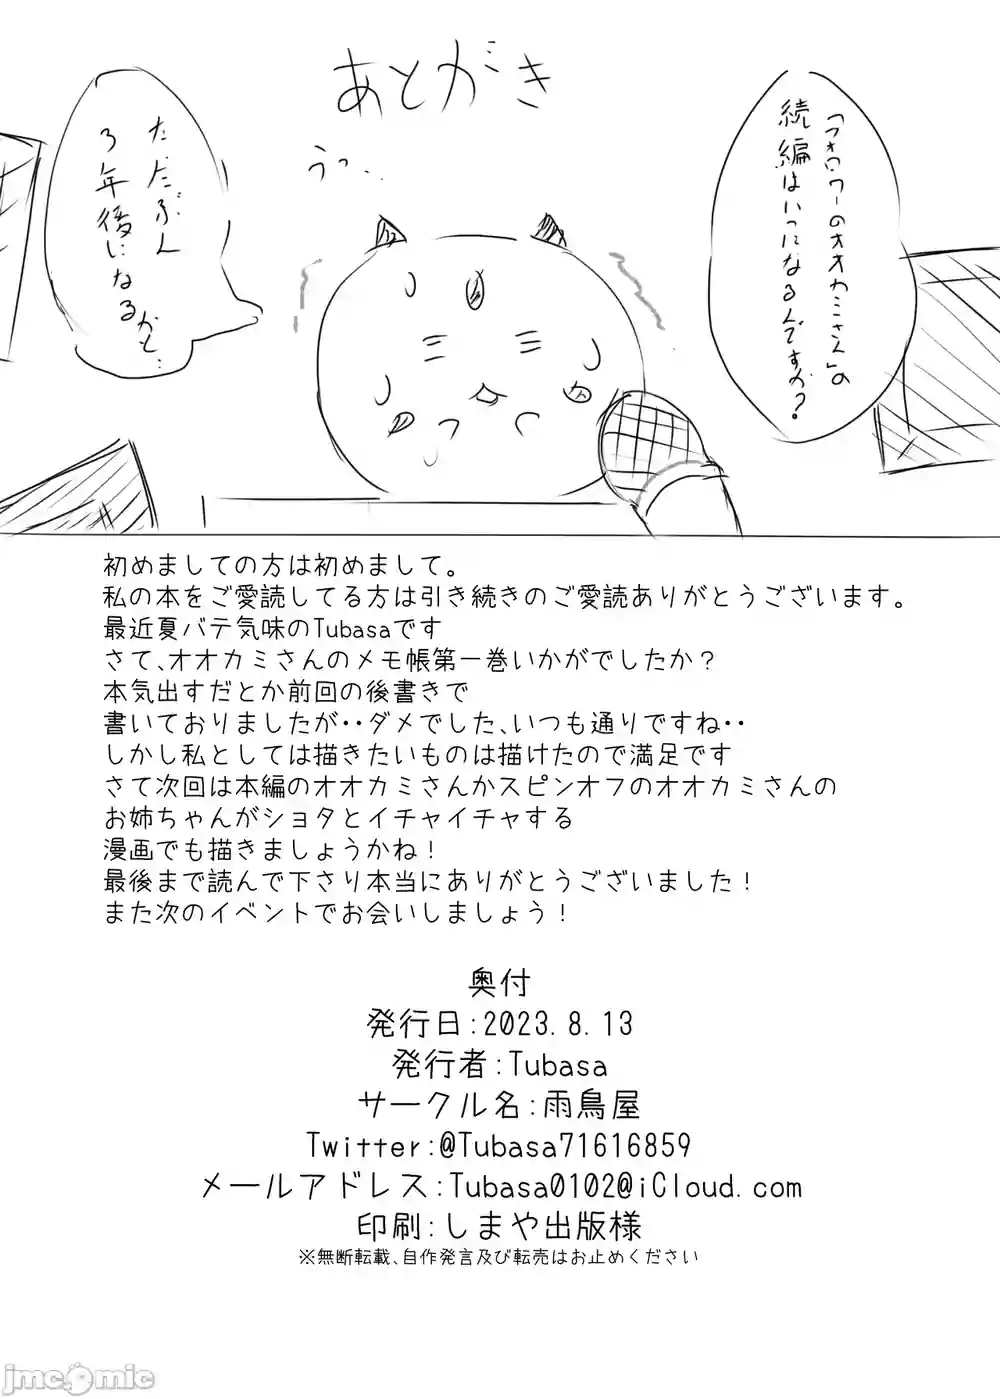 あとがき
「フォロワーのオオカミさん」の
続編はいつになるんですか?
うっ…
た、たぶん
3年後になるかと…
初めましての方は初めまして。
私の本をご愛読してる方は引き続きのご愛読ありがとうございます。
最近夏バテ気味のTubasaです
さて、オオカミさんのメモ帳第一巻いかがでしたか?
本気出すだとか前回の後書きで
書いておりましたが・・ダメでした、いつも通りですね・・
しかし私としては描きたいものは描けたので満足です
さて次回は本編のオオカミさんかスピンオフのオオカミさんの
お姉ちゃんがショタとイチャイチャする
漫画でも描きましょうかね!
最後まで読んで下さり本当にありがとうございました!
また次のイベントでお会いしましょう!
奥付
発行日:2023.8.13
発行者:Tubasa
サークル名:雨鳥屋
Twitter:@Tubasa71616859
メールアドレス:Tubasa0102@iCloud.com
印刷:しまや出版様
※無断転載、自作発言及び転売はお止めください
jmcomic